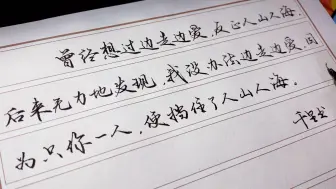 曾经想过边走边爱,反正人山人海.
后来无力地发现,我没办法边走边爱.因
为只你一人,便挡住了人山人海.